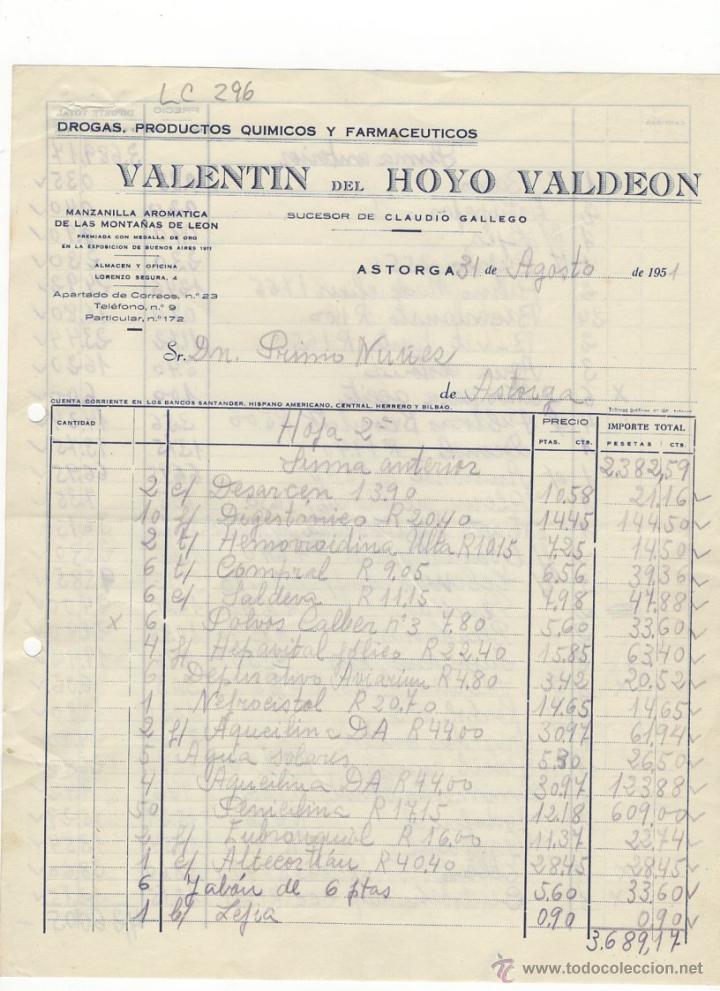 LC 296
DROGAS, PRODUCTOS QUIMICOS Y FARMACEUTICOS
VALENTIN DEL HOYO VALDEON
MANZANILLA AROMATICA
DE LAS MONTAÑAS DE LEON
PREMIADA CON MEDALLA DE ORO
EN LA EXPOSICION DE BUENOS AIRES 1911
SUCESOR DE CLAUDIO GALLEGO
ALMACEN Y OFICINA
LORENZO SEGURA, 4
ASTORGA 31 de Agosto de 1951
Apartado de Correos, n.º 23
Teléfono, n.º 9
Particular, n.º 172
Sr. Dn. Primo Nuñes
de Astorga
CUENTA CORRIENTE EN LOS BANCOS SANTANDER, HISPANO AMERICANO, CENTRAL, HERRERO Y BILBAO.
CANTIDAD PRECIO IMPORTE TOTAL
PTAS. CTS. PESETAS CTS.
Hoja 2ª
Suma anterior 2.382,59
2 c/ Desarcen 13.90 10.58 21,16
10 f/ Digestónico R 20,40 14.45 144,50
2 t/ Ulta R 10.15 7.25 14,50
6 t/ Compral R 9,05 6.56 39,36
6 c/ Saldeva R 11,15 7,98 47,88
x 6 Polvos Calber nº 3 7,80 5,60 33,60
4 f/ Hepavital R 22,40 15,85 63,40
6 Depurativo R 4,80 3,42 20,52
1 Nefrocistol R 20,70 14,65 14,65
2 f/ Aqucilina DA R 44,00 30,97 61,94
5 Agua solares 5,30 26,50
4 Aqucilina DA R 44,00 30,97 123,88
50 Penicilina R 17,15 12,18 609,00
2 f/ R 16,00 11,37 22,74
1 c/ R 40,40 28,45 28,45
6 Jabón de 6 ptas 5,60 33,60
1 b/ Lejia 0,90 0,90
3.689,17
www.todocoleccion.net